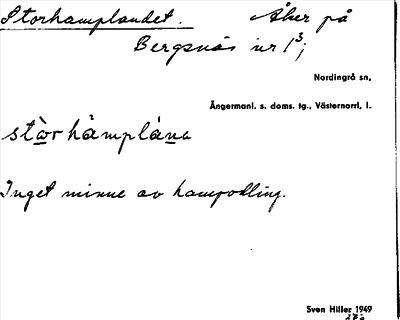 Storhamplandet. Åker på
Bergsnäs nr 1³;
Nordingrå sn,
Ångermanl. s. doms. tg., Västernorrl. l.
stòrhàmplána
Inget minne av hampodling.
Sven Hiller 1949